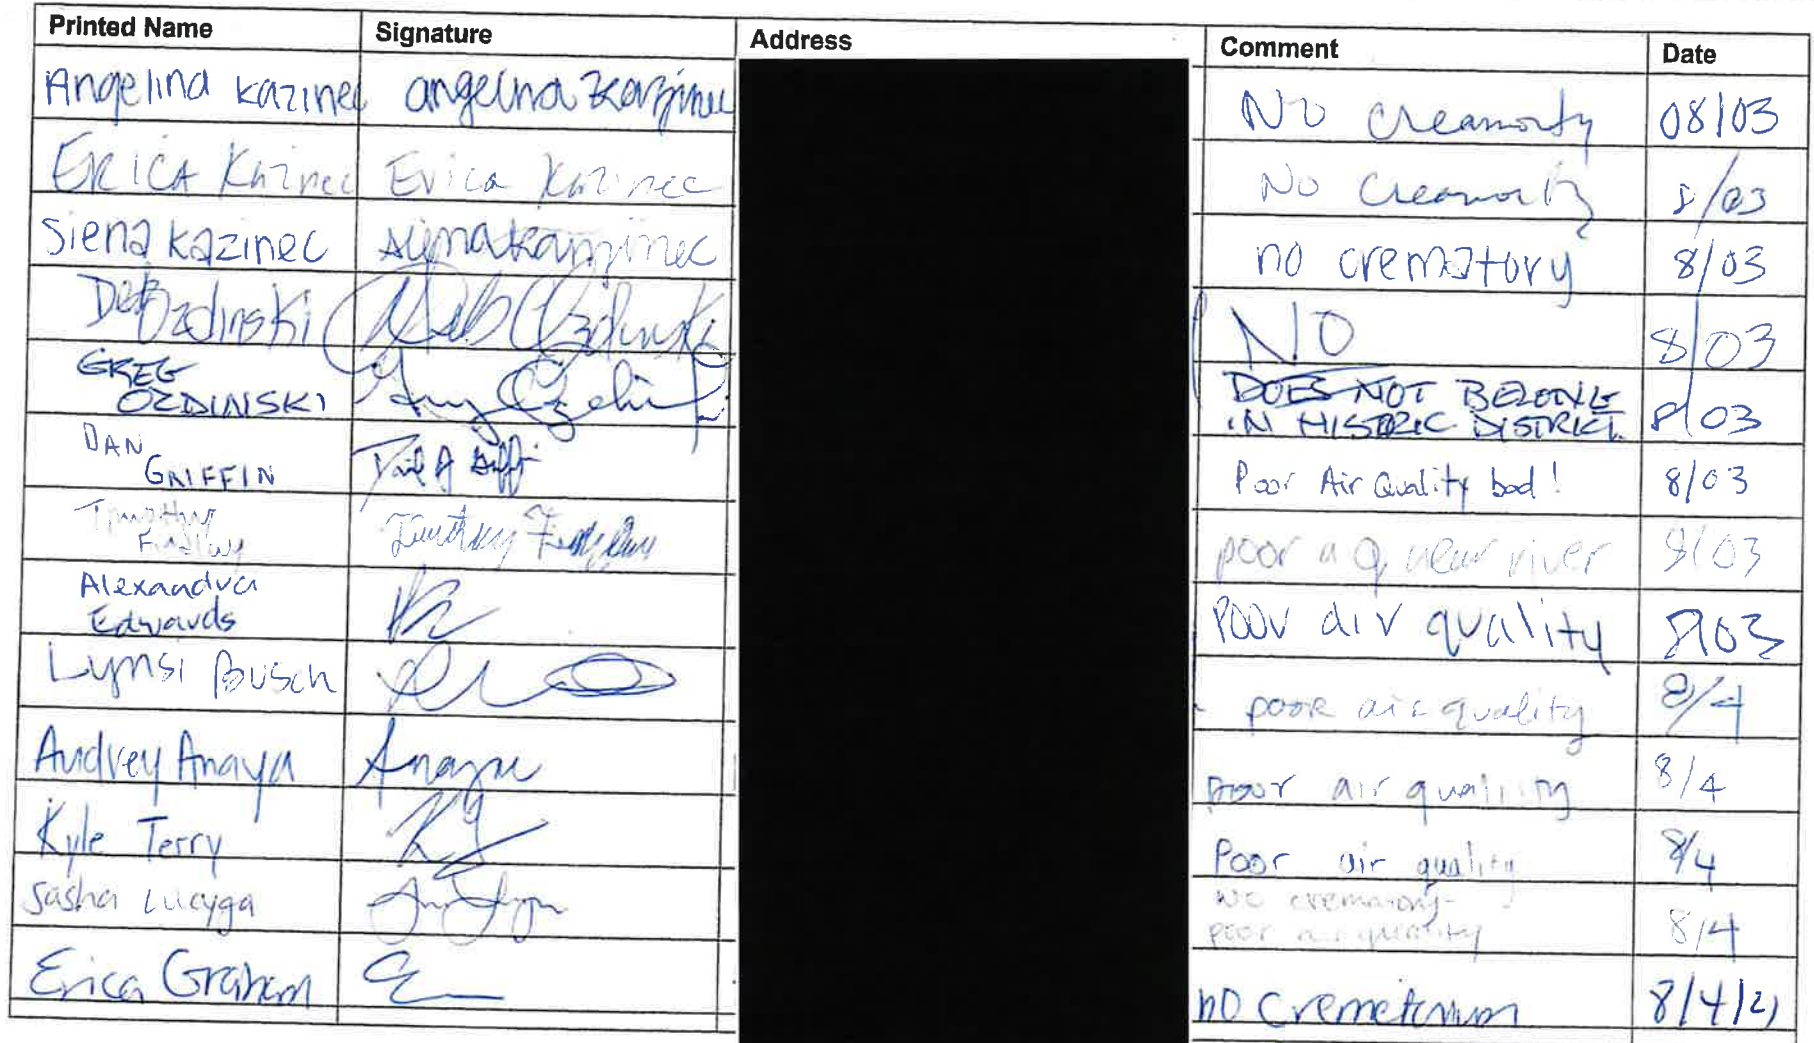 Printed Name Signature Address Comment Date
Angelina Kazinec angelina Kazinec No Creamorty 08/03
ERICA Kazinec Erica Kazinec No Creamorty 8/03
Siena Kazinec Siena Kazinec no crematory 8/03
Deb Ozdinski Deb Ozdinski NO 8/03
GREG
OZDINSKI
DOES NOT BELONG
IN HISTORIC DISTRICT. 8/03
DAN
GRIFFIN
Poor Air Quality bad! 8/03
Timothy
Findlay
Timothy Findlay poor a q near river 8/03
Alexandra
Edwards
poor air quality 8/03
Lynsi Busch poor air quality 8/4
Audrey Anaya Anaya poor air quality 8/4
Kyle Terry Poor air quality 8/4
Sasha Lucyga
No crematory-
poor air quality 8/4
Erica Graham no Crematorium 8/4/21